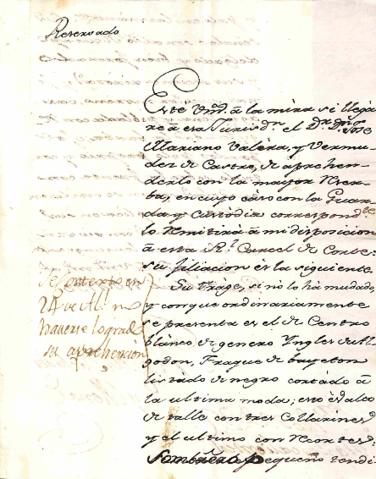 Reservado
Esté Vmd. â la mira si llegá
re â esa Jurisdn. el Dr. Dn. Jose
Mariano Valéra, y Vermu
dez de Castro, de aprehen
derlo con la mayor Reser
ba, en cuyo caso con la Guar
da y Custodia correspondte.
lo Remitirá â mi disposicion
â esta Rl. Carcel de Corte:
su filiacion ès la siguiente.
Su Trage, si nó lo há mudado,
y con que ordinariamente
se presenta es el de Centro
blanco de genero Yngles de Al
godon, Fraque de bayeton
listado de negro cortado â
la ultima moda; esto és alto
de talle con tres Collarines
y el ultimo con Recortes:
Sombrero pequeño tendi
Se puerto en
24 de Abl. n
haverse lograd
su aprehencion